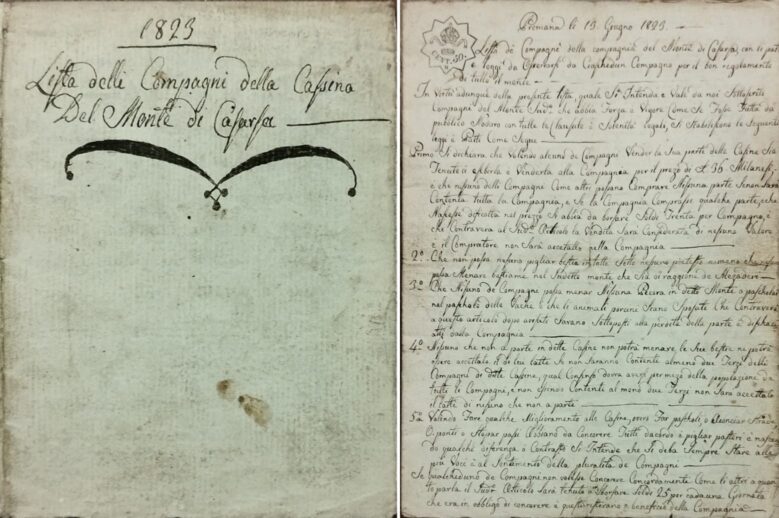 1823
Lista delli Compagni della Cassina
Del Monte di Casarsa
Premana li 13. Giugno 1823.
Lista de Compagni della compagnia del Monte di Casarsa, con li patti
e leggi da Osservarsi da Ciaschedun Compagno per il bon regolamento
di tutto il monte
In Virtù adunque della presente lista quale Si Intenda e Vall da noi Sottoscritti
Compagni del Monte Sud.º che abbia Forza e Vigore Come Se Fosse Fatta da
publico Nodaro con tutte le Clausule e Solenità legali, Si Stabilissono le Seguenti
leggi e Patti Come Segue
Primo Si dichiara, che Volendo alcuno de Compagni Vender la Sua parte della Casina Sia
Tenuto ad esibirla e Venderla alla Compagnia per il prezo di 36 Milanesi,
e che nessuno delli Compagni Come altri possano Comprare Nessuna parte Senon Sarà
Contenta tutta la Compagnia, e Se la Compagnia Comprasse qualche parte, e che
Nasesse dificoltà nel prezzo Si abbia da borsare Soldi Trenta per Compagno, e
che Contraverà al Sud.º Articolo la Vendita Sarà Considerata di nessuno Valore
e il Compratore non Sarà accettato nella Compagnia
2.º Che non possa nessuno pigliar bestie in latte Sotto nessuno pretesto nemeno che nessuno
possa Menare bestiame nel Sudetto monte che Sia di raggione de Mezaderi
3.º Che Nessuno de Compagni possa menar Nessuna Pecora in detto Monte a pascholare
nel pascholo delle Vache e che li animali porcini Siano Contraverà
a questo articolo dopo avisati Sarano Sottoposti alla perdita della parte e
dalla Compagnia
4.º Nessuno che non à parte in dette Casine non potrà menare le Sue bestie ne potrà
esere accettato il di lui latte Se non Saranno Contenti almeno due Terzi delli
Compagni di dette Casine, qual Consenso dovrà aversi per mezo della
tutti li Compagni, e non essendo Contenti al meno due Terzi non Sarà accettato
il latte di nessuno che non a parte
5.º Volendo Fare qualche Miglioramento alle Casine, overo Far pascholi, o Strada
O, ponti o Stopar passi Abbiano da Concorere Tutti dacordo e pigliar partieri e nascen
do qualche diferenza o Contrasto Si Intende che Si deba Sempre Stare alle
più Voce e al Sentimento della pluralità de Compagni
Se qualcheduno de Compagni non volesse Concorere Concordamente Come li altri a quan
to parla il Sud.º Articolo Sarà Tenuto a Sborsare Soldi 25 per cadauna Giornata
che era in obbligo di concorere e questi resterano a beneficio della Compagnia